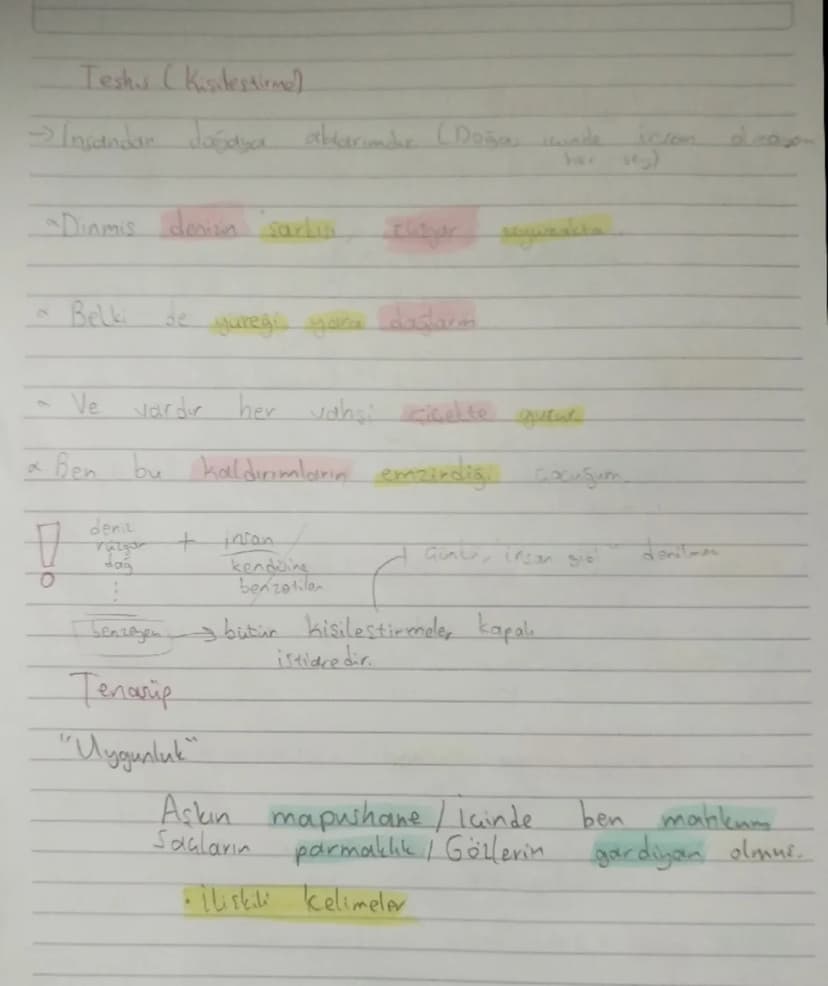 Teşhis (Kişileştirme)
→ İnsandan doğaya aktarımdır (Doğa, içinde insan olmayan
her şey)
Dinmiş denizin şarkısı, rüzgar uyumakta
Belki de yüreği yara dağların
Ve vardır her vahşi çiçekte gurur
Ben bu kaldırımların emzirdiği çocuğum
! deniz
rüzgar + insan
dağ kendisine
⋮ benzetilen
Çünkü, "insan gibi" denilmez
benzeyen → bütün kişileştirmeler kapalı
istiaredir.
Tenasüp
"Uygunluk"
Aşkın mapushane / İçinde ben mahkum
Saçların parmaklık / Gözlerin gardiyan olmuş.
• ilişkili kelimeler